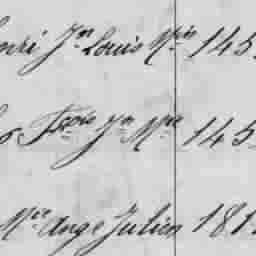 enri Jn Louis Mie 145
o Fçois Jn Mie 145
Mie Ange Julien 181